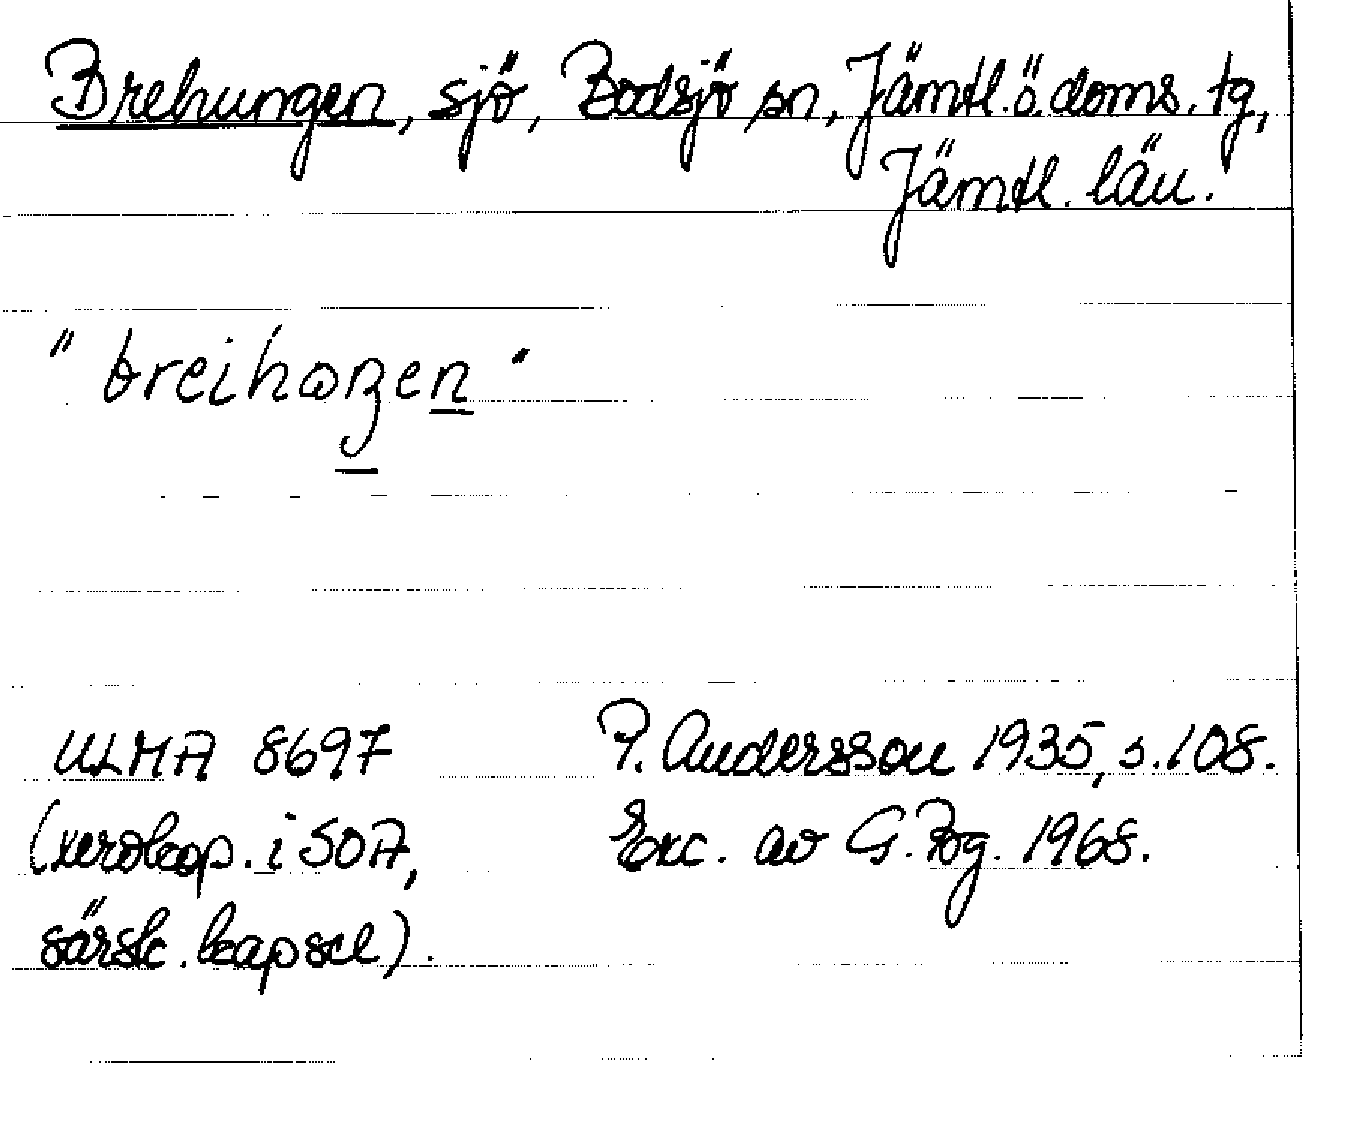 Brehungen, sjö, Bodsjö sn, Jämtl. ö. doms. tg,
Jämtl. län.
" breihɷŋen "
ULMA 8697 P. Andersson 1935, s. 108.
(xerokop. i SOA, Exc. av G. 1968.
särsk. kapsel).